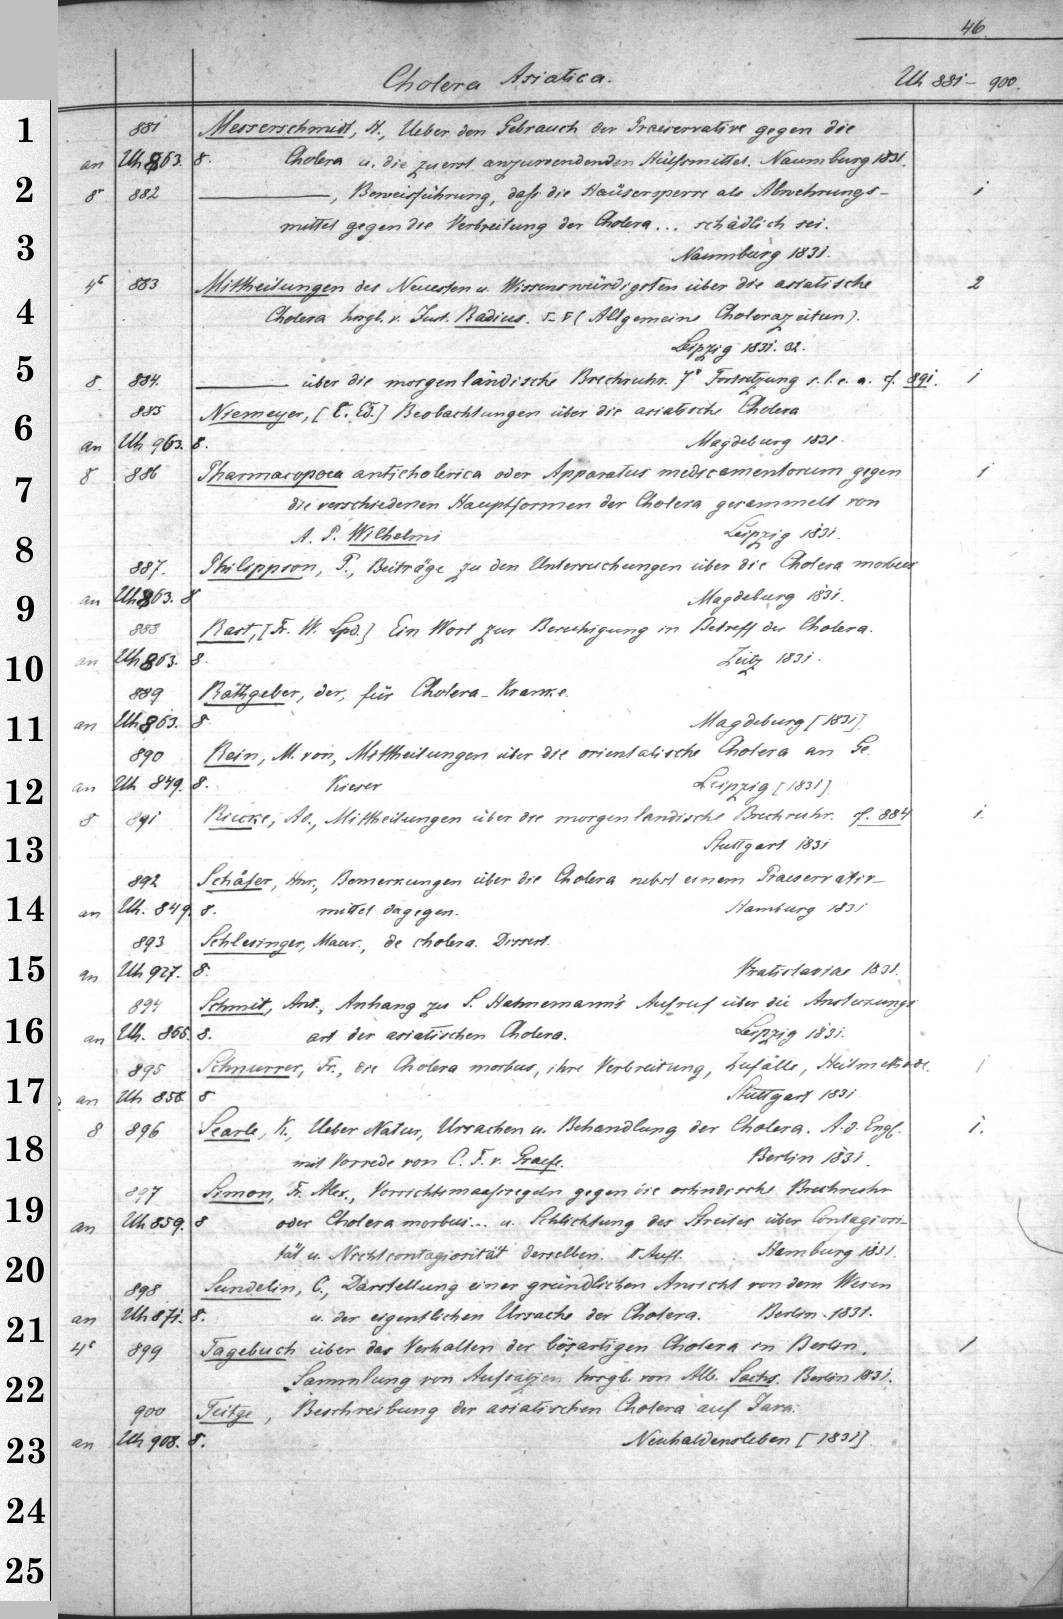 46.
Cholera Asiatica. Uh 881 – 900.
1
881 Messerschmidt, H., Ueber den Gebrauch der Praeservative gegen die
an Uh 863. 8. Cholera u. die zuerst anzuwendenden Hülfsmittel. Naumburg 1831.
2
8 882 ———, Beweisführung, dass die Haüsersperre als Abwehrungs- 1
mittel gegen die Verbreitung der Cholera... schädlich sei.
3
Naumburg 1831.
4t 883 Mittheilungen des Neuesten u. Wissenswürdigsten über die asiatische 2
4
Cholera hrsgb. v. Just. Radius. I-V (Allgemeine Cholerazeitun).
Leipzig 1831. 32.
5
8. 884. ——— über die morgenländische Brechruhr. 7e Fortsetzung s. l. e. a. cf. 891. 1
885 Niemeyer, [C. Ed.] Beobachtungen über die asiatische Cholera
6
an Uh 963. 8. Magdeburg 1831.
8 886 Pharmacopoea anticholerica oder Apparatus medicamentorum gegen 1
7
die verschiedenen Hauptformen der Cholera gesammelt von
A. P. Wilhelmi Leipzig 1831.
8
887. Philippson, P., Beiträge zu den Untersuchungen über die Cholera morbus
an Uh 863. 8 Magdeburg 1831.
9
888 Rast, [Fr. W. Lpd.] Ein Wort zur Beruhigung in Betreff der Cholera.
10
an Uh 863. 8. Zeitz 1831.
889 Rathgeber, der, für Cholera-Kranke.
11
an Uh 863. 8. Magdeburg [1831]
890 Rein, M. von, Mittheilungen über die orientalische Cholera an Ge.
12
an Uh 849. 8. Kieser Leipzig [1831]
8 891 Riecke, Ad., Mittheilungen über die morgenländische Brechruhr. cf. 884 1.
13
Stuttgart 1831
892 Schäfer, Hnr., Bemerkungen über die Cholera nebst einem Praeservativ-
14
an Uh. 849. 8. mittel dagegen. Hamburg 1831
893 Schlesinger, Maur., de cholera. Dissert.
15
an Uh 927. 8. Vratislaviae 1831.
894 Schmit, Ant., Anhang zu S. Hahnemann's Aufruf über die Ansteckungs
16
an Uh. 866. 8. art der asiatischen Cholera. Leipzig 1831.
895 Schnurrer, Fr., die Cholera morbus, ihre Verbreitung, Zufälle, Heilmethode. 1
17
an Uh 858. 8 Stuttgart 1831.
8 896 Searle, K., Ueber Natur, Ursachen u. Behandlung der Cholera. A. d. Engl. 1.
18
mit Vorrede von C. F. v. Graefe. Berlin 1831.
897 Simon, Fr. Alex., Vorsichtsmaassregeln gegen die ostindische Brechruhr
19
an Uh 859. 8 oder Cholera morbus... u. Schlichtung des Streites über Contagiosi-
tät u. Nichtcontagiosität derselben. II Aufl. Hamburg 1831.
20
898 Sundelin, C., Darstellung einer gründlichen Ansicht von dem Wesen
an Uh 871. 8. u. der eigentlichen Ursache der Cholera. Berlin. 1831.
21
4t 899 Tagebuch über das Verhalten der bösartigen Cholera in Berlin. 1
22
Sammlung von Aufsätzen hrsgb. von Alb. Sachs. Berlin 1831.
900 Teitge, Beschreibung der asiatischen Cholera auf Java.
23
an Uh 908. 8. Neuhaldensleben [1831]
24
25